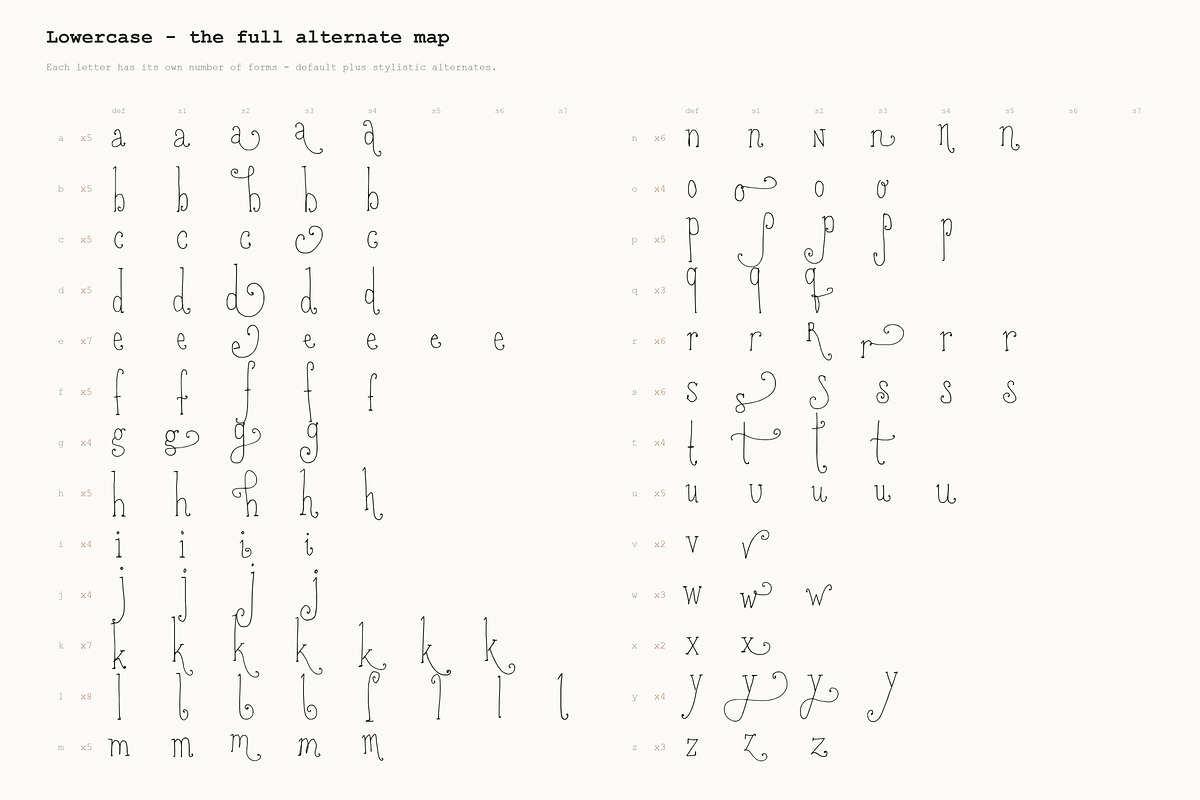 Lowercase - the full alternate map
Each letter has its own number of forms - default plus stylistic alternates.
def s1 s2 s3 s4 s5 s6 s7
a x5 a a a a a
b x5 b b b b b
c x5 c c c c c
d x5 d d d d d
e x7 e e e e e e e
f x5 f f f f f
g x4 g g g g
h x5 h h h h h
i x4 i i i i
j x4 j j j j
k x7 k k k k k k k
l x8 l l l l l l l l
m x5 m m m m m
def s1 s2 s3 s4 s5 s6 s7
n x6 n n N n n n
o x4 o o o o
p x5 p p p p p
q x3 q q q
r x6 r r R r r r
s x6 s s s s s s
t x4 t t t t
u x5 u u u u u
v x2 v v
w x3 w w w
x x2 x x
y x4 y y y y
z x3 z z z